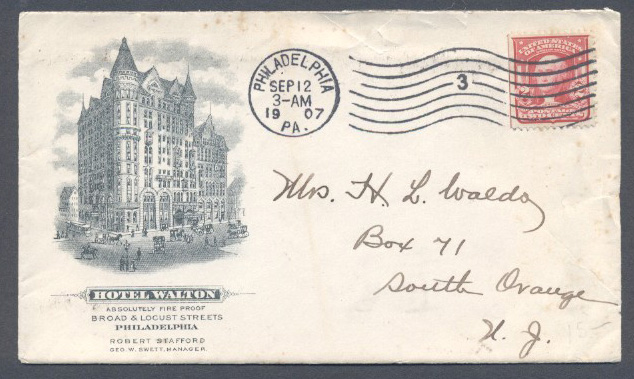 PHILADELPHIA
SEP 12
3-AM
1907
PA.
3
UNITED STATES
OF AMERICA
2 2
Mrs. H L. Waldo
Box 71
South Orange
N. J.
HOTEL WALTON
ABSOLUTELY FIRE PROOF
BROAD & LOCUST STREETS
PHILADELPHIA
ROBERT STAFFORD
GEO. W. SWETT, MANAGER.